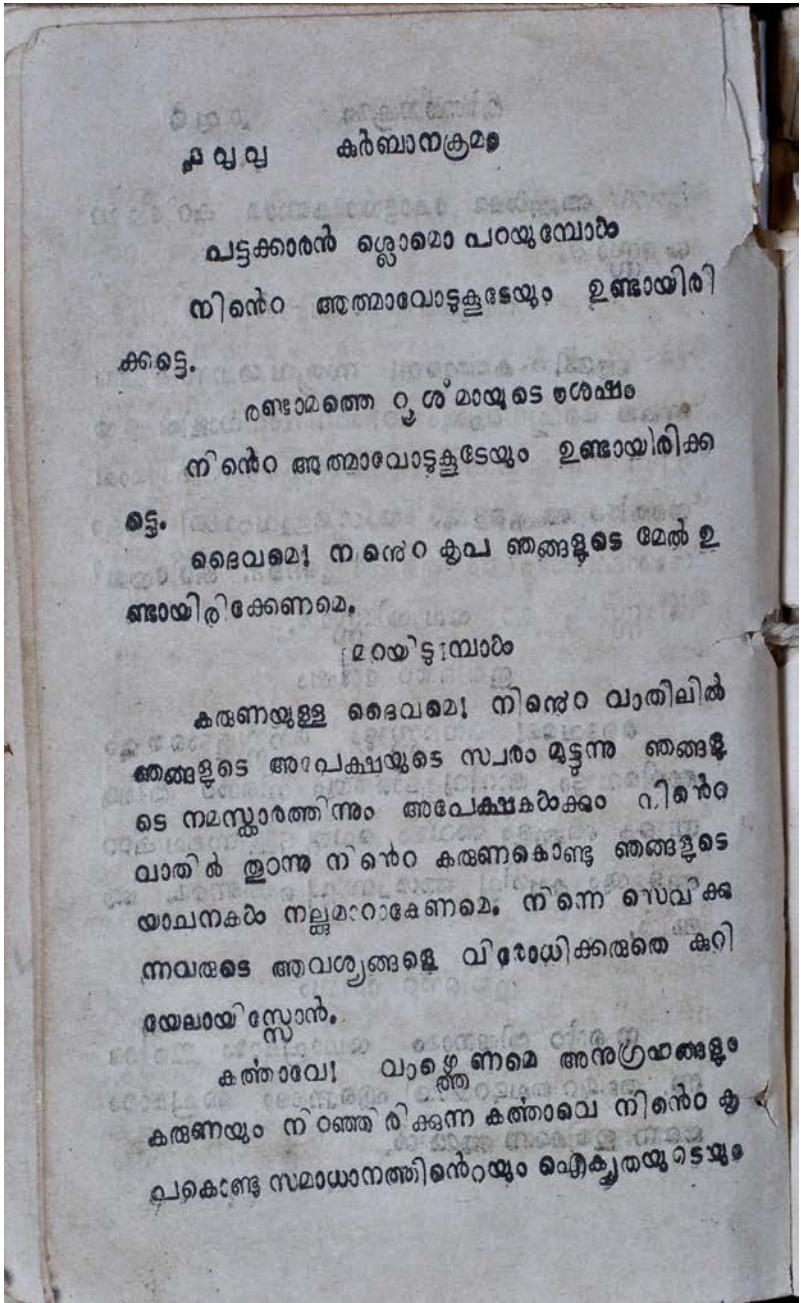 ൧൮൮ കുർബാനക്രമം
പട്ടക്കാരൻ ശ്ലൊമൊ പറയുമ്പോൾ
നിൻെറ ആത്മാവോടുകൂടേയും ഉണ്ടായിരി
ക്കട്ടെ.
രണ്ടാമത്തെ റൂശ്മായുടെ ശേഷം
നിൻെറ ആത്മാവോടുകൂടേയും ഉണ്ടായിരിക്ക
ട്ടെ.
ദൈവമെ! നിൻെറ കൃപ ഞങ്ങളുടെ മേൽ ഉ
ണ്ടായിരിക്കേണമെ.
മറയിടുമ്പോൾ
കരുണയുള്ള ദൈവമെ! നിൻെറ വാതിലിൽ
ഞങ്ങളുടെ അപേക്ഷയുടെ സ്വരം മുട്ടുന്നു ഞങ്ങളു
ടെ നമസ്കാരത്തിന്നും അപേക്ഷകൾക്കും നിൻെറ
വാതിൽ തുറന്നു നിൻെറ കരുണകൊണ്ടു ഞങ്ങളുടെ
യാചനകൾ നല്കുമാറാകേണമെ. നിന്നെ സെവിക്കു
ന്നവരുടെ ആവശ്യങ്ങളെ വിരോധിക്കരുതെ കുറി
യേലായിസ്സോൻ.
കൎത്താവേ! വാഴ്ത്തേണമെ അനുഗ്രഹങ്ങളും
കരുണയും നിറഞ്ഞിരിക്കുന്ന കൎത്താവെ നിൻെറ കൃ
പകൊണ്ടു സമാധാനത്തിൻെറയും ഐക്യതയുടെയും